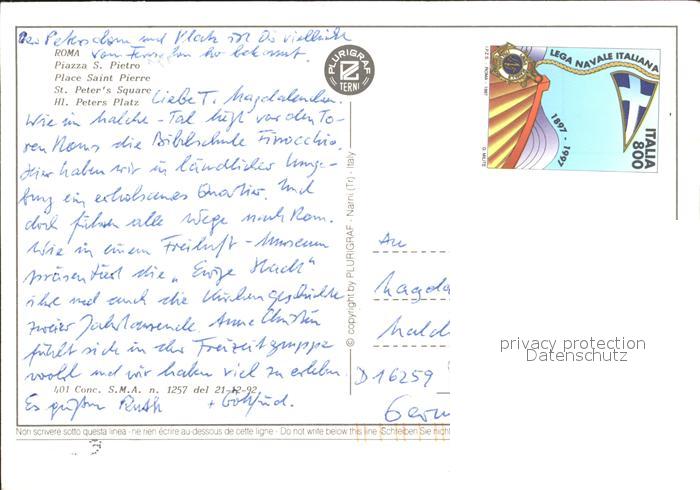 Der Petersdom und Platz ist Dir vielleicht
vom Fernsehen her bekannt.
ROMA
Piazza S. Pietro
Place Saint Pierre
St. Peter's Square
Hl. Peters Platz
Liebe T. Magdalenchen.
Wie im Malche-Tal liegt vor den To-
ren Roms die Bibelschule Finocchio.
Hier haben wir in ländlicher Umge-
bung ein erholsames Quartier. Und
doch führen alle Wege nach Rom.
Wie in einem Freiluft-Museum
präsentiert die „Ewige Stadt"
ihre und auch die Kirchengeschichte
zweier Jahrtausende. Anne Christin
fühlt sich in der Freizeitgruppe
wohl und wir haben viel zu erleben.
401 Conc. S.M.A. n. 1257 del 21-12-92
Es grüßen Ruth + Gottfried.
PLURIGRAF
TERNI
© copyright by PLURIGRAF - Narni (Tr) - Italy
LEGA NAVALE ITALIANA
1897 - 1997
ITALIA
800
I.P.Z.S. - ROMA - 1997
An
Magda
Malch
D 16259
Germ
privacy protection
Datenschutz
Non scrivere sotto questa linea - ne rien écrire au-dessous de cette ligne - Do not write below this line Schreiben Sie nicht